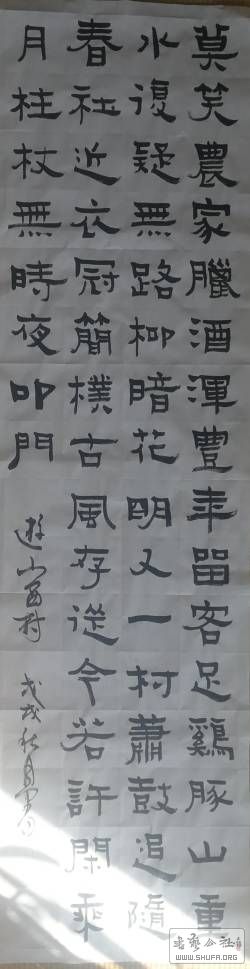 莫笑農家臘酒渾豐年留客足鷄豚山重
水復疑無路柳暗花明又一村蕭鼓追隨
春社近衣冠簡樸古風存從今若許閑乘
月柱杖無時夜叩門
遊山西村
戊戌秋月
书艺公社
WWW.SHUFA.ORG